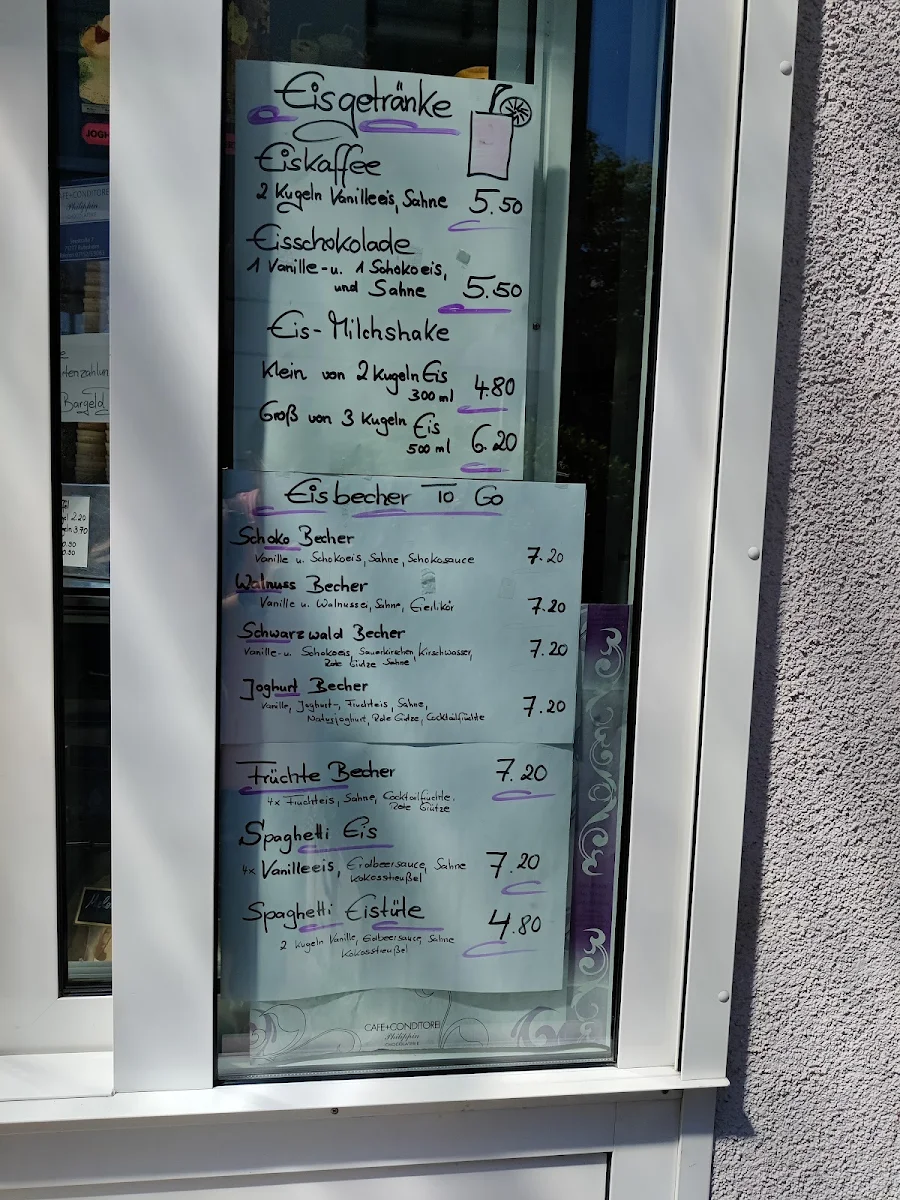 Eisgetränke
Eiskaffee
2 Kugeln Vanilleeis, Sahne 5.50
Eisschokolade
1 Vanille-u. 1 Schokoeis,
und Sahne 5.50
Eis-Milchshake
Klein von 2 Kugeln Eis
300 ml 4.80
Groß von 3 Kugeln Eis
500 ml 6.20
Eisbecher To Go
Schoko Becher
Vanille u. Schokoeis, Sahne, Schokosauce 7.20
Walnuss Becher
Vanille u. Walnussei, Sahne, Eierlikör 7.20
Schwarzwald Becher
Vanille-u. Schokoeis, Sauerkirschen, Kirschwasser, 7.20
Rote Grütze Sahne
Joghurt Becher
Vanille, Joghurt-, Fruchteis, Sahne, 7.20
Naturjoghurt, Rote Grütze, Cocktailfrüchte
Früchte Becher 7.20
4x Fruchteis, Sahne, Cocktailfrüchte.
Rote Grütze
Spaghetti Eis
4x Vanilleeis, Erdbeersauce, Sahne 7.20
Kokosstreußel
Spaghetti Eistüte 4.80
2 Kugeln Vanille, Erdbeersauce, Sahne
Kokosstreußel
CAFE+CONDITOREI
Philippin
JOGH
CAFE+CONDITOREI
Philippin
Bargeld
2.20
3.70